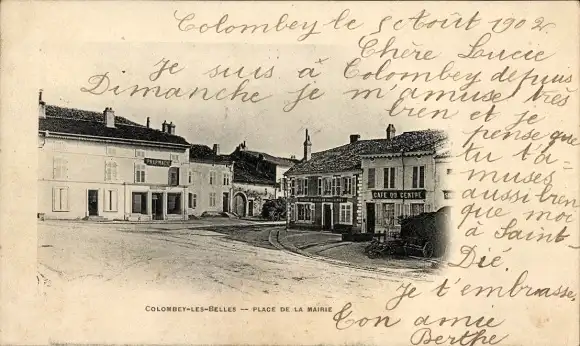 Colombey le 5 Août 1902
Chère Lucie
Je suis à Colombey depuis
Dimanche je m'amuse très
bien et je
pense que
tu t'a-
muses
aussi bien
que moi
à Saint-
Dié.
Je t'embrasse,
Ton amie
Berthe
PHARMACIE
CAFE DU CENTRE
COLOMBEY-LES-BELLES — PLACE DE LA MAIRIE